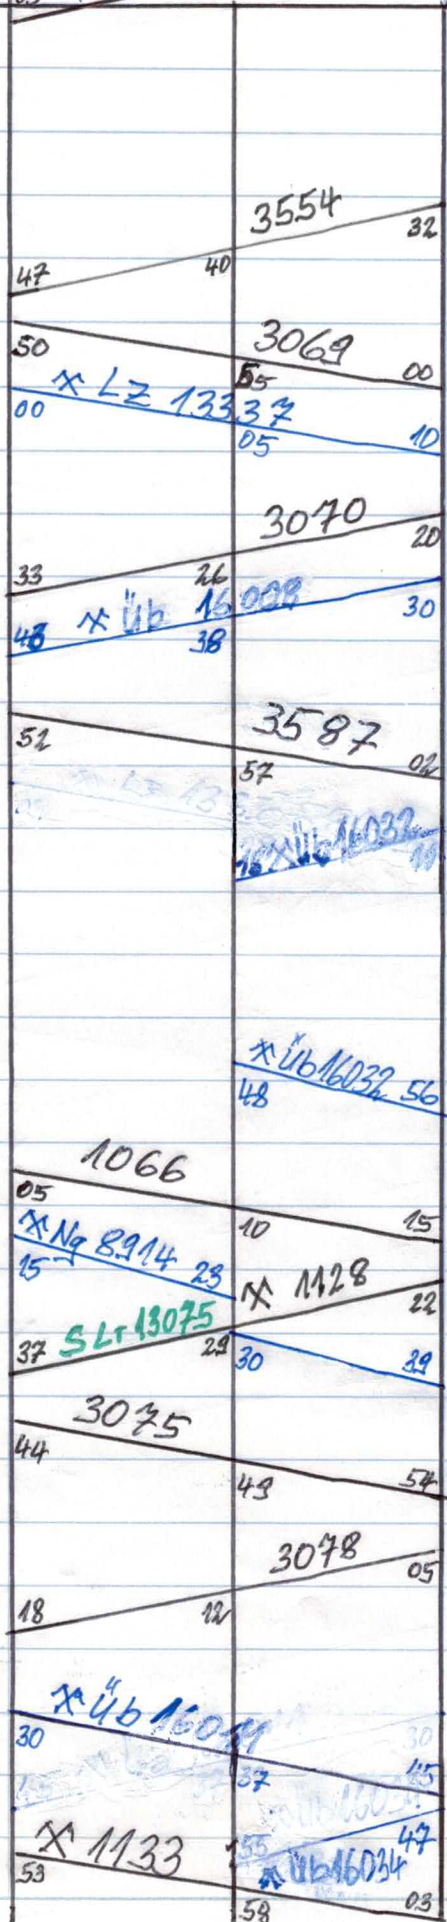 3554
32
40
47
50
3069
55
00
× LZ 13337
00
05
10
3070
20
33
26
× Üb 16098
30
48
38
52
3587
57
02
×Üb16032
×Üb16032
48
56
1066
05
10
15
×Ng 8914
15
23
× 1128
22
SLr 13075
37
29
30
39
3075
44
49
54
3078
05
18
12
× Üb
30
37
× 1133
47
×Üb16034
53
59
03